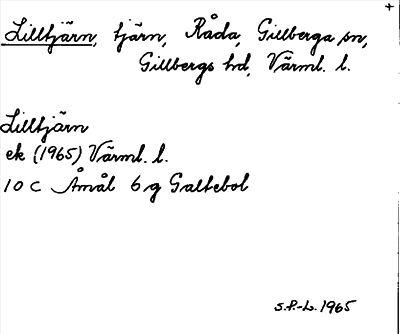 Lilltjärn, tjärn, Råda, Gillberga sn,
Gillbergs hd, Värml. l.
Lilltjärn
ek (1965) Värml. l.
10 C Åmål 6 g Galtebol
S.P.-L. 1965